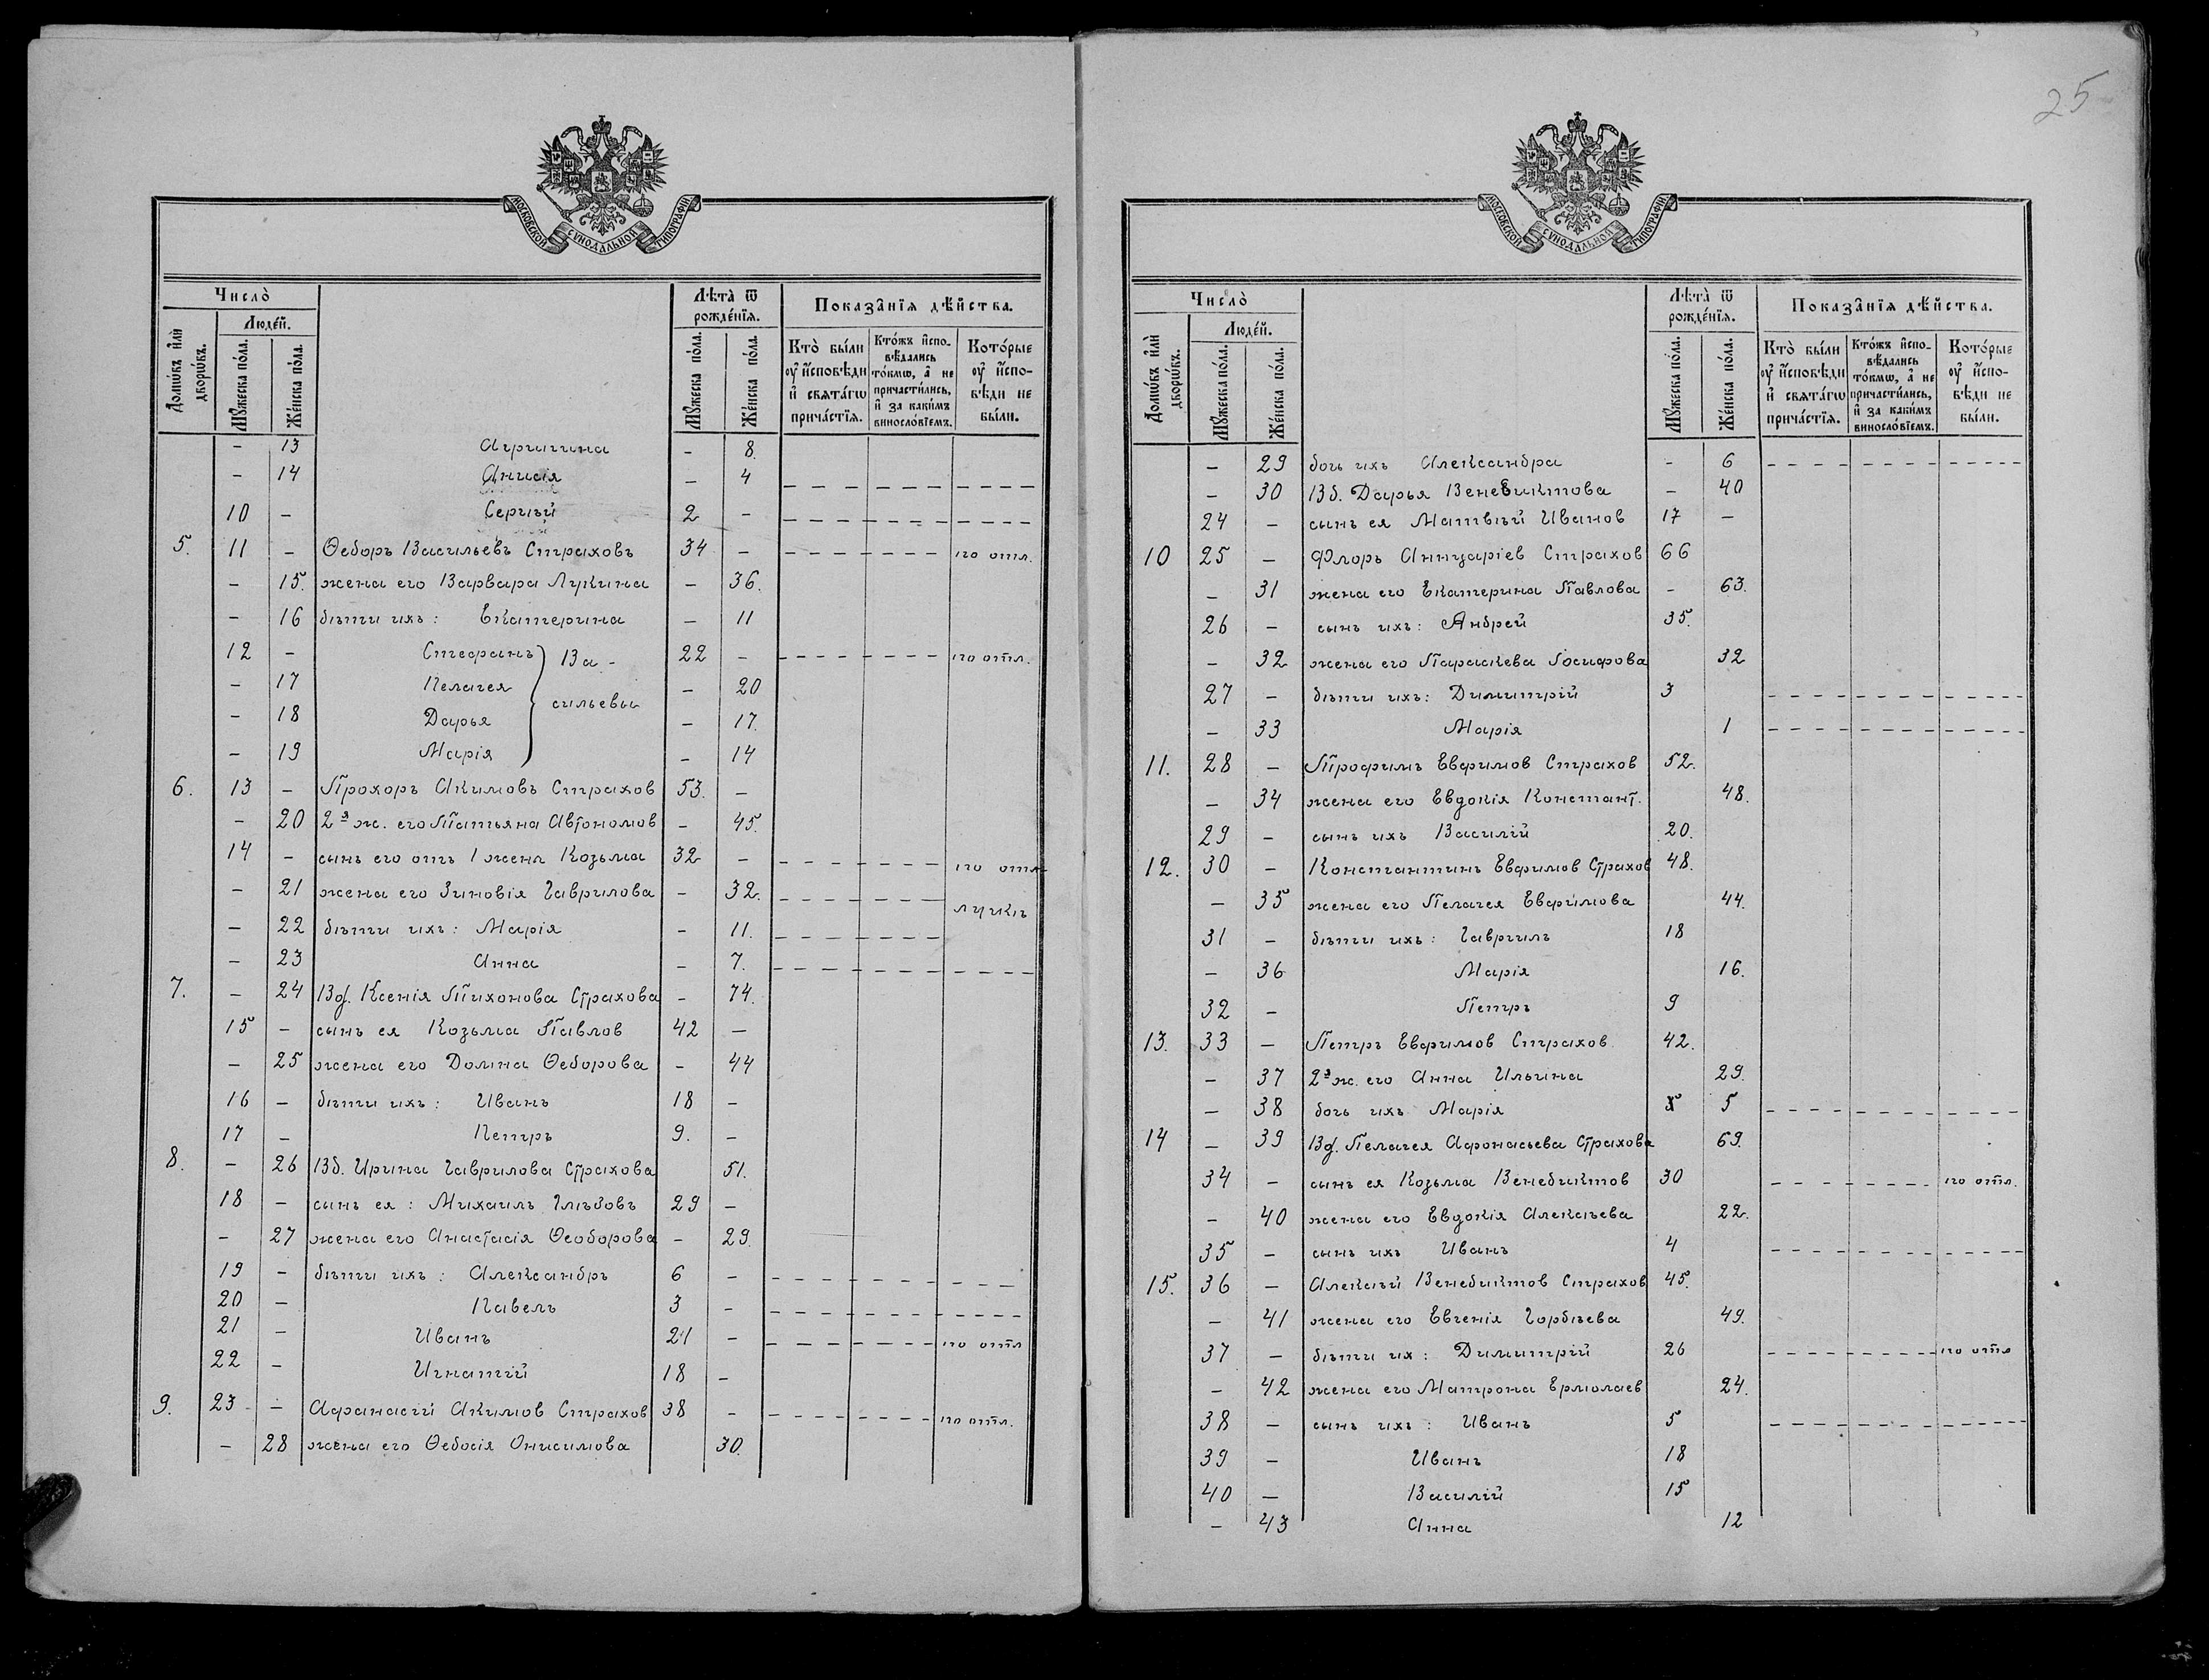 МОСКОВСКОЙ СѴНОДАЛЬНОЙ ТИПОГРАФІИ
Число̀
Домѡ́въ и҆лѝ дворѡ́въ.
Люде́й.
Мꙋ́жеска по́ла.
Же́нска по́ла.
Лѣ́та ѿ рожде́нїѧ.
Мꙋ́жеска по́ла.
Же́нска по́ла.
Показа̑нїѧ дѣ́йства.
Кто̀ бы́ли ᲂу҆ и҆́сповѣди и҆ свѧта́гѡ прича́стїѧ.
Кто́жъ и҆спо-
вѣ́дались то́кмѡ, а҆ не причасти́лись, и҆ за каки́мъ винословїемъ.
Кото́рые ᲂу҆ и҆́спо-
вѣди не бы́ли.
- 13 Агрипина - 8.
- 14 Анисія - 4
10 - Сергѣй 2 -
5. 11 - Ѳедоръ Васильевъ Страховъ 34 - по отл.
- 15. жена его Варвара Лукина - 36.
- 16 дѣти ихъ: Екатерина - 11
12 - Стефанъ } Ва- 22 - по отл.
- 17 Пелагея - 20
сильевы
- 18 Дарья - 17.
- 19 Марія - 14
6. 13 - Прохоръ Акимовъ Страхов 53. -
- 20 2я ж. его Татьяна Автономов - 45.
14 - сынъ его отъ 1 жены Козьма 32 - по отл
- 21 жена его Зиновія Гаврилова - 32.
- 22 дѣти ихъ: Марія - 11.
- 23 Анна - 7.
7. - 24 Вд. Ксенія Тихонова Страхова - 74.
15 - сынъ ея Козьма Павлов 42 -
- 25 жена его Домна Ѳедорова - 44
16 - дѣти ихъ: Иванъ 18 -
17 - Петръ 9. -
8. - 26 Вд. Ирина Гаврилова Страхова 51.
18 - сынъ ея: Михаилъ Глѣбовъ 29 -
- 27 жена его Анастасія Ѳеодорова - 29.
19 - дѣти ихъ: Александръ 6 -
20 - Павелъ 3 -
21 - Иванъ 21 - по отл
22 - Игнатій 18 -
9. 23 - Афанасій Акимов Страхов 38 - по отл.
- 28 жена его Ѳедосія Онисимова 30.
25
МОСКОВСКОЙ СѴНОДАЛЬНОЙ ТИПОГРАФІИ
Число̀
Домѡ́въ и҆лѝ дворѡ́въ.
Люде́й.
Мꙋ́жеска по́ла.
Же́нска по́ла.
Лѣ́та ѿ рожде́нїѧ.
Мꙋ́жеска по́ла.
Же́нска по́ла.
Показа̑нїѧ дѣ́йства.
Кто̀ бы́ли ᲂу҆ и҆́сповѣди и҆ свѧта́гѡ прича́стїѧ.
Кто́жъ и҆спо-
вѣ́дались то́кмѡ, а҆ не причасти́лись, и҆ за каки́мъ винословїемъ.
Кото́рые ᲂу҆ и҆́спо-
вѣди не бы́ли.
- 29 дочь ихъ Александра - 6
- 30 Вд. Дарья Венедиктова - 40
24 - сынъ ея Матвѣй Иванов 17 -
10 25 - Флоръ Аннуаріев Страхов 66
- 31 жена его Екатерина Павлова - 63.
26 - сынъ ихъ: Андрей 35.
- 32 жена его Параскева Іосифова 32
27 - дѣти ихъ: Димитрій 3
- 33 Марія 1
11. 28 - Трофимъ Евфимов Страхов 52.
- 34 жена его Евдокія Констант. 48.
29 - сынъ ихъ Василій 20.
12. 30 - Константинъ Евфимов Страхов 48.
- 35 жена его Пелагея Евфимова 44.
31 - дѣти ихъ: Гавріилъ 18
- 36 Марія 16.
32 - Петръ 9
13. 33 - Петръ Евфимов Страхов 42.
- 37 2я ж. его Анна Ильина 29.
- 38 дочь ихъ Марія 5
14 - 39 Вд. Пелагея Афонасьева Страхова 69.
34 - сынъ ея Козьма Венедиктов 30 по отл.
- 40 жена его Евдокія Алексѣева 22.
35 - сынъ ихъ Иванъ 4
15. 36 - Алексѣй Венедиктов Страхов 45.
- 41 жена его Евгенія Гордѣева 49.
37 - дѣти их: Димитрій 26 по отл
- 42 жена его Матрона Ермолаев 24.
38 - сынъ ихъ: Иванъ 5
39 - Иванъ 18
40 - Василій 15
- 43 Анна 12